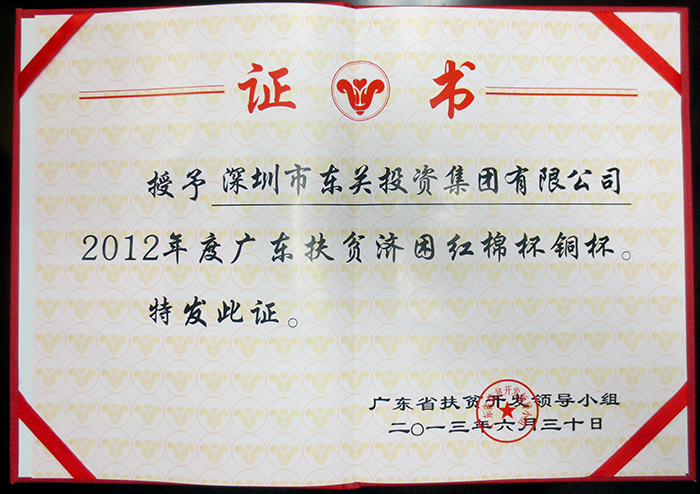 证书
授予深圳市东关投资集团有限公司
2012年度广东扶贫济困红棉杯铜杯。
特发此证。
广东省扶贫开发领导小组
二〇一三年六月三十日